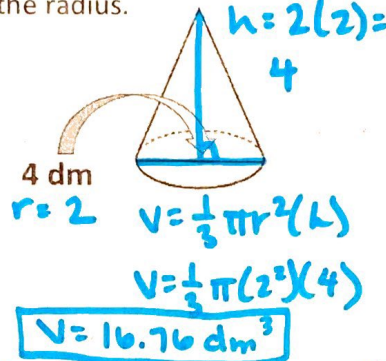 the radius.
h = 2(2) =
4
4 dm
r = 2
V = 1/3 πr²(h)
V = 1/3 π(2²)(4)
V = 16.76 dm³